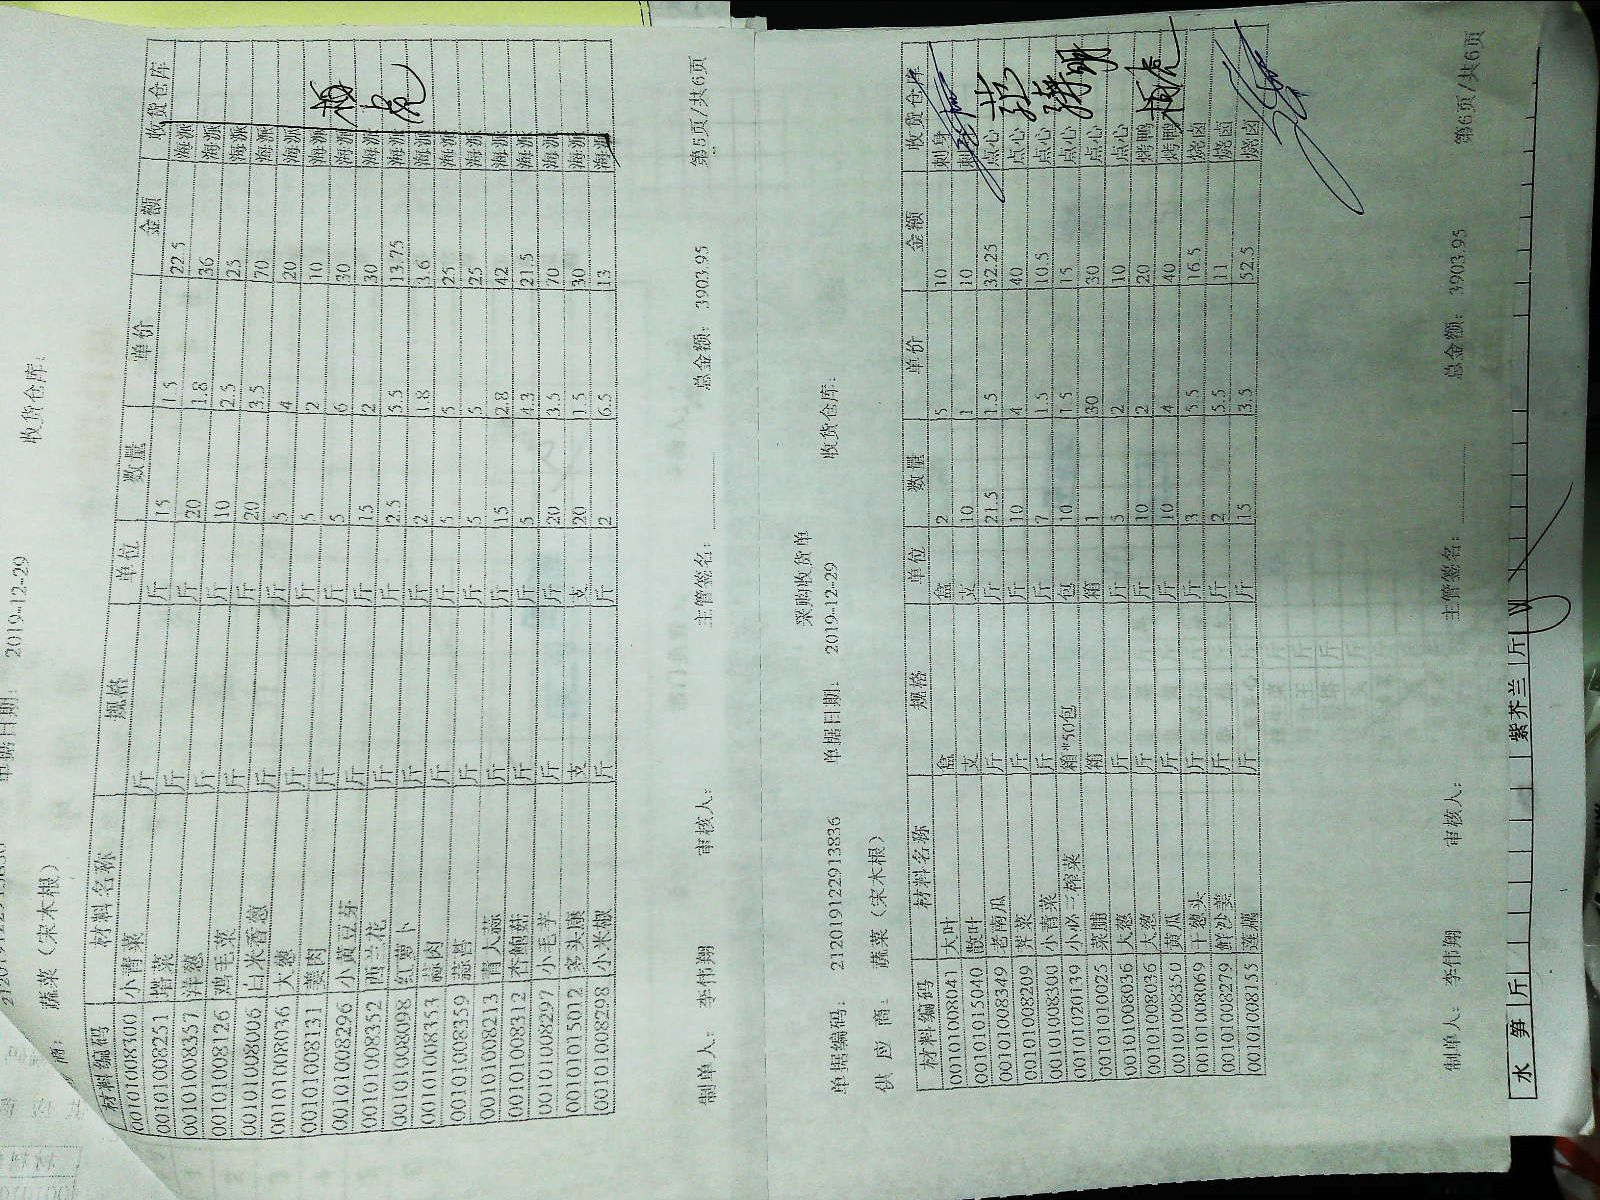 2019-12-29 收货仓库:
蔬菜（宋木根）
材料编码 材料名称 规格 单位 数量 单价 金额 收货仓库
00101008300 小青菜 斤 斤 15 1.5 22.5 海派
00101008251 塔菜 斤 斤 20 1.8 36 海派
00101008357 洋葱 斤 斤 10 2.5 25 海派
00101008126 鸡毛菜 斤 斤 20 3.5 70 海派
00101008006 白米香葱 斤 斤 5 4 20 海派
00101008036 大葱 斤 斤 5 2 10 海派
00101008131 姜肉 斤 斤 5 6 30 海派
00101008296 小黄豆芽 斤 斤 15 2 30 海派
00101008352 西兰花 斤 斤 2.5 5.5 13.75 海派
00101008098 红萝卜 斤 斤 2 1.8 3.6 海派
00101008353 蒜肉 斤 斤 5 5 25 海派
00101008359 蒜苔 斤 斤 5 5 25 海派
00101008213 青大蒜 斤 斤 15 2.8 42 海派
00101008312 杏鲍菇 斤 斤 5 4.3 21.5 海派
00101008297 小毛芋 斤 斤 20 3.5 70 海派
00101015012 多头康 支 支 20 1.5 30 海派
00101008298 小米椒 斤 斤 2 6.5 13 海派
制单人: 李伟翔 审核人: 主管签名: 总金额: 3903.95 第5页/共6页
采购收货单
单据编码: 21201912291383​6 单据日期: 2019-12-29 收货仓库:
供 应 商: 蔬菜（宋木根）
材料编码 材料名称 规格 单位 数量 单价 金额 收货仓库
00101008041 大叶 盒 盒 2 5 10 刺身
00101015040 散叶 支 支 10 1 10
00101008349 老南瓜 斤 斤 21.5 1.5 32.25 点心
00101008209 荠菜 斤 斤 10 4 40 点心
00101008300 小青菜 斤 斤 7 1.5 10.5 点心
00101020139 小必三榨菜 箱*50包 包 10 1.5 15 点心
00101010025 菜脯 箱 箱 1 30 30 点心
00101008036 大葱 斤 斤 5 2 10 点心
00101008036 大葱 斤 斤 10 2 20 烤鸭
00101008350 黄瓜 斤 斤 10 4 40 烤鸭
00101008069 干葱头 斤 斤 3 5.5 16.5 烧卤
00101008279 鲜沙姜 斤 斤 2 5.5 11 烧卤
00101008155 莲藕 斤 斤 15 3.5 52.5 烧卤
制单人: 李伟翔 审核人: 主管签名: 总金额: 3903.95 第6页/共6页
水 笋 斤 紫芥兰 斤